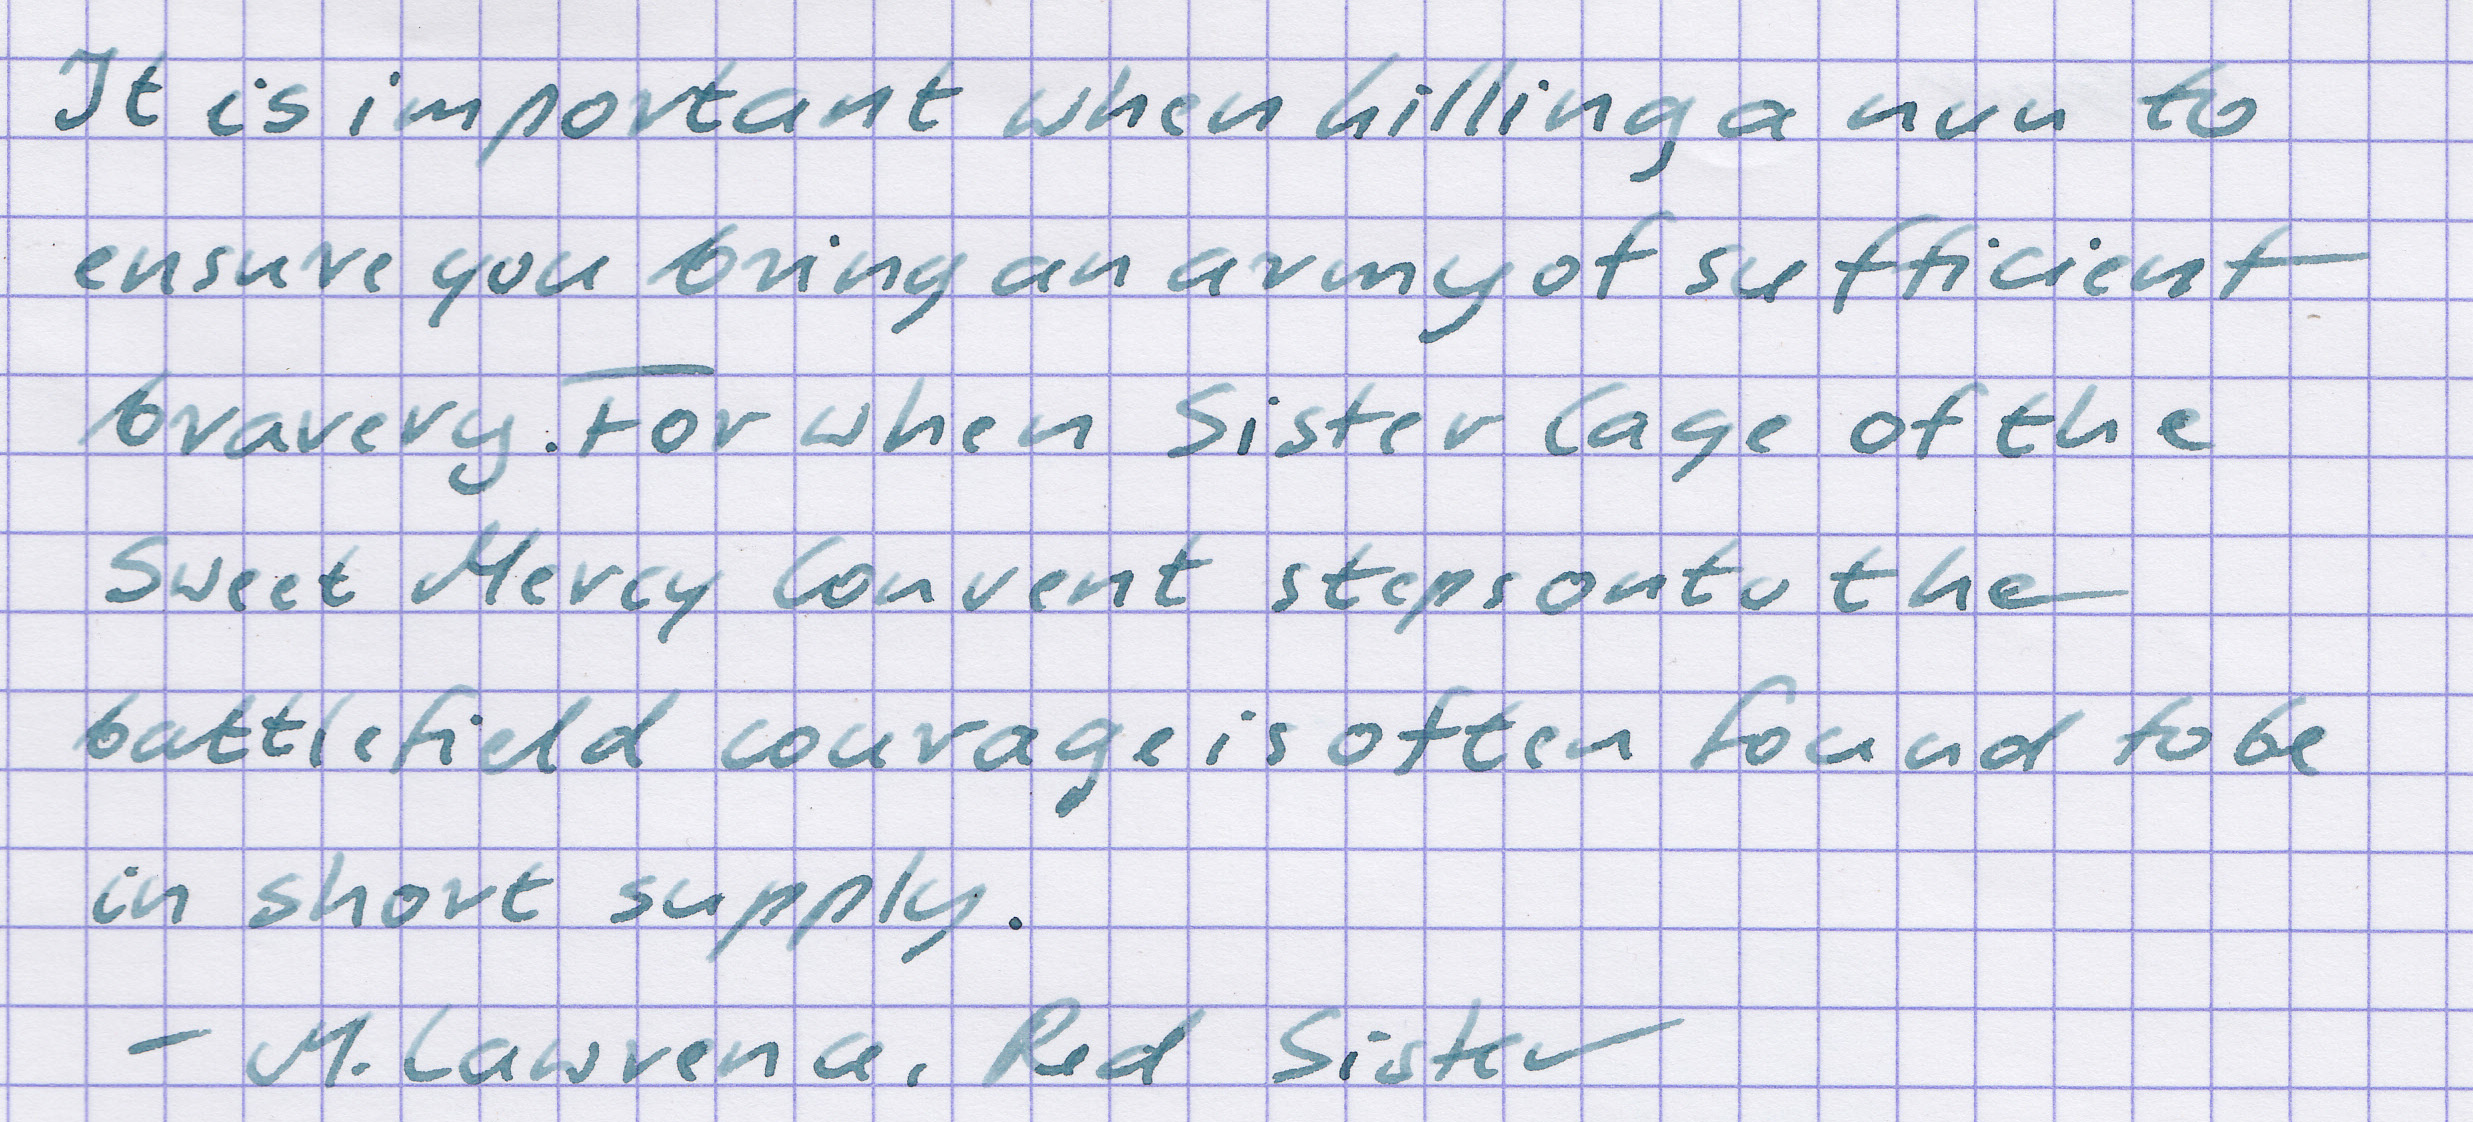 It is important when killing a nun to
ensure you bring an army of sufficient
bravery. For when Sister Cage of the
Sweet Mercy Convent steps onto the
battlefield courage is often found to be
in short supply.
– M. Lawrence, Red Sister